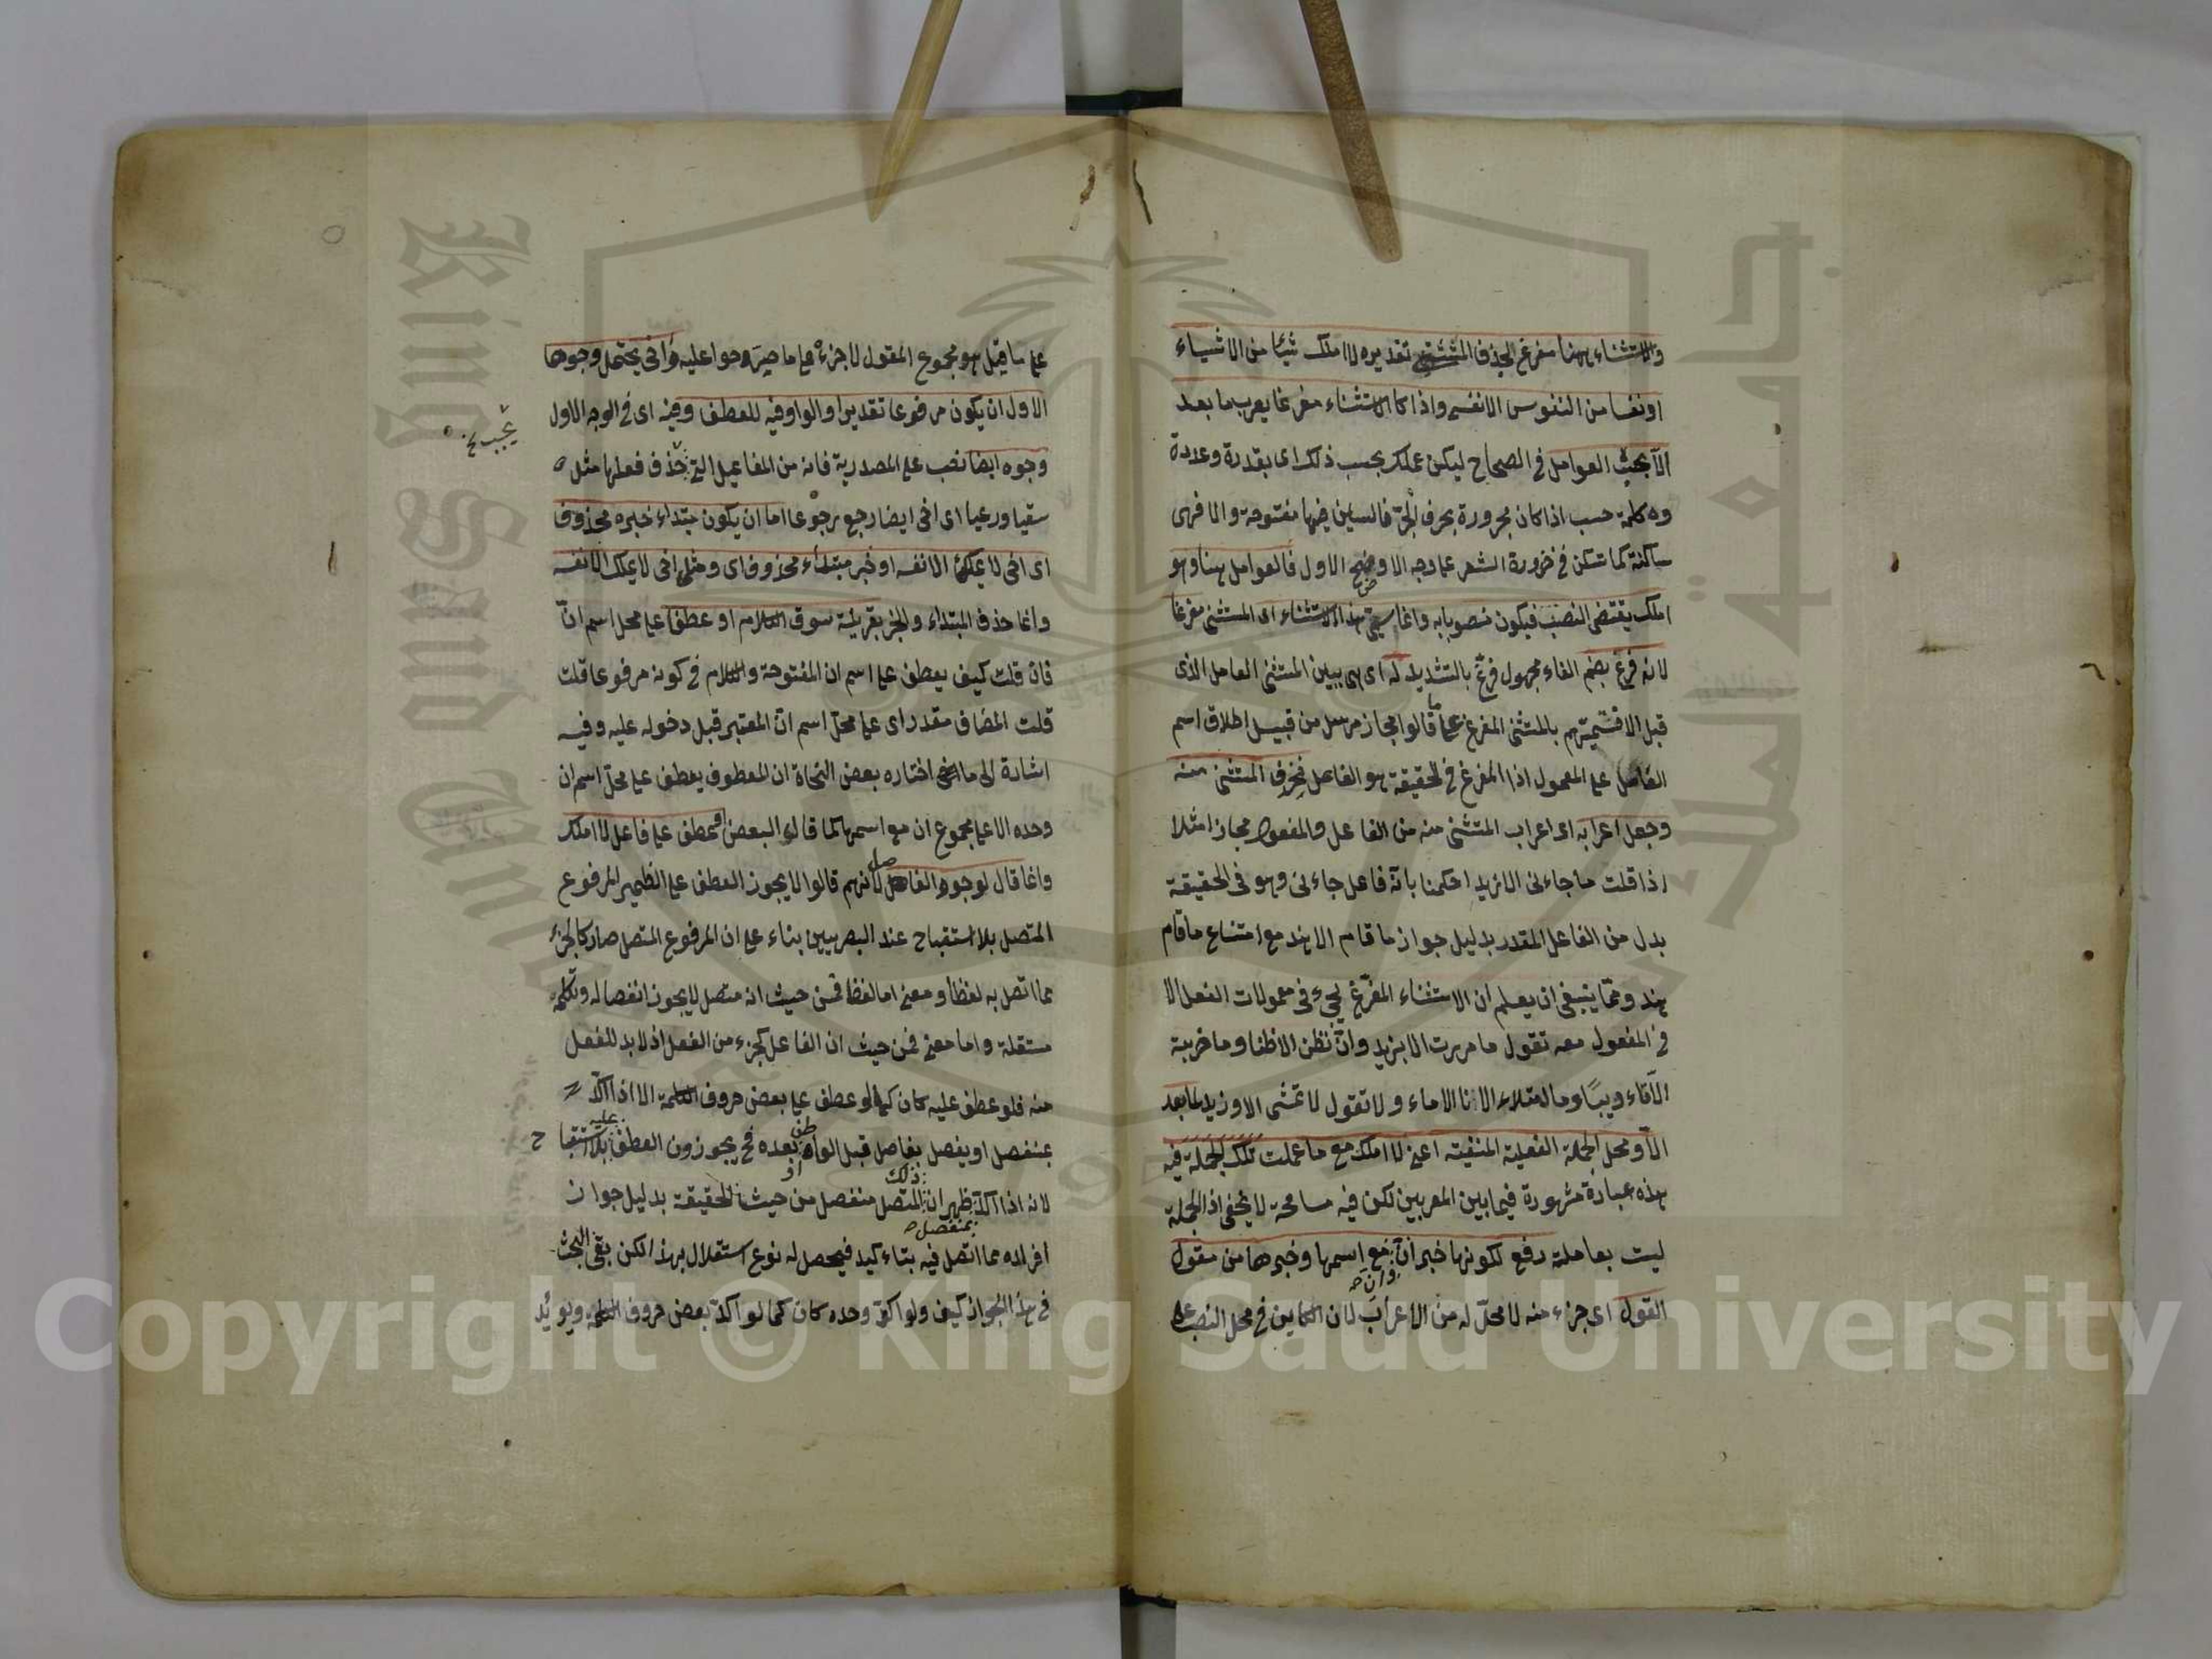 والاستثناء ههنا مفرغ لحذف المستثنى تقديره لا املك شيئا من الاشياء
او نفسا من النفوس الا نفسى واذا كا الاستثناء مفرغا يعرب ما بعد
الا بحيث العوامل فى الصحاح ليكن عملك بحسب ذلك اى بقدرة وعددة
وه كلمة حسب اذا كان مجرورة بحرف الجر فالسين فيها مفتوحة والا فهى
ساكنة كما تسكن فى ضرورة الشعر على وجه الاوضح الاول فالعوامل هنا وهو
املك يقتضى النصب فيكون منصوبا به وانما سمى هذا الاستثناء اى المستثنى مفرغا
لانه فرغ بضم الفاء مجهول فرغ بالتشديد له اى هى يبين المستثنى العامل الذى
قبل الا فتسميتهم بالمستثنى المفرغ على ما قالوا مجاز مرسل من قبيل اطلاق اسم
العامل على المعمول اذا المفرغ فى الحقيقة هو الفاعل فحرف المستثنى منه
وجعل اعرابه اى اعراب المستثنى منه من الفاعل والمفعول مجازا مثلا
اذا قلت ما جاءنى الا زيد احكمنا بانه فاعل جاءنى وهو فى الحقيقة
بدل من الفاعل المقدر بدليل جواز ما قام الا هند مع امتناع ما قام
هند ومما ينبغى ان يعلم ان الاستثناء المفرغ يجىء فى معمولات الفعل الا
فى المفعول معه تقول ما مررت الا بزيد وان نظن الا ظنا وما ضربته
الا تاديبا وما امتلاء الانا الا ماء ولا تقول لا تمشى الا وزيد لما بعد
الا ومحل الجملة الفعلية المنفيته اعنى لا املك مع ما عملت تلك الجملة فيه
هذه عبارة مشهورة فيما بين المعربين لكن فيه مسامحة لا يخفى اذ الجملة
ليست بعاملة رفع لكونها خبر ان مع اسمها وخبرها من مقول
وان
القول اى جزء منه لا محل له من الاعراب لان الكاين فى محل النصب على
على ما قيل هو مجموع المقول لا جزءه على ما صرحوا عليه واخى يحتمل وجوها
الاول ان يكون مرفوعا تقديرا والواو فيه للعطف وفيه اى فى الوجه الاول
وجوه ايضا نصب على المصدرية فانه من المفاعيل التى حذف فعلها مثل
يجب نخ
سقيا ورعيا اى اخى ايضا رجع رجوعا اما ان يكون مبتداء خبره محذوف
اى اخى لا يملك الا نفسه او خبر مبتداء محذوف اى ومثلى اخى لا يملك الا نفسه
وانما حذف المبتداء والخبر بقرينة سوق الكلام او عطفا على محل اسم ان
فان قلت كيف يعطف على اسم ان المفتوحة والكلام فى كونه مرفوعا قلت
قلت المضاف مقدر اى على محل اسم ان المعتبر قبل دخوله عليه وفيه
اشارة الى ما اختاره بعض النحاة ان المعطوف يعطف على محل اسم ان
وحده لا على مجموع ان مع اسمها كما قاله البعض او عطف على فاعل لا املك
وانما قال لوجود الفاصل لانهم قالوا لا يجوز العطف على الضمير المرفوع
المتصل بلا استقباح عند البصريين بناء على ان المرفوع المتصل صار كالجزء
مما اتصل به لفظا ومعنى اما لفظا فمن حيث انه متصل لا يجوز انفصاله وتكلمه
مستقلة واما معنى فمن حيث ان الفاعل كجزء من الفعل اذ لا بد للفعل
منه فلو عطف عليه كان كما لو عطف على بعض حروف الكلمة الا اذا اكد
بمنفصل او يفصل بفاصل قبل الواو او بعده فح يجوزون العطف عليه بلا استقباح
لانه اذا اكد ظهر ان ذلك المتصل منفصل من حيث الحقيقة بدليل جواز
بمنفصل
افراده مما اتصل فيه بتاءكيد فيحصل له نوع استقلال بهذا لكن بقى البحث
فى هذا الجواز كيف ولو اكد وحده كان كما لو اكد بعض حروف الكلمة ويوئيد
Copyright © King Saud University
King Saud University
جامعة الملك
1957